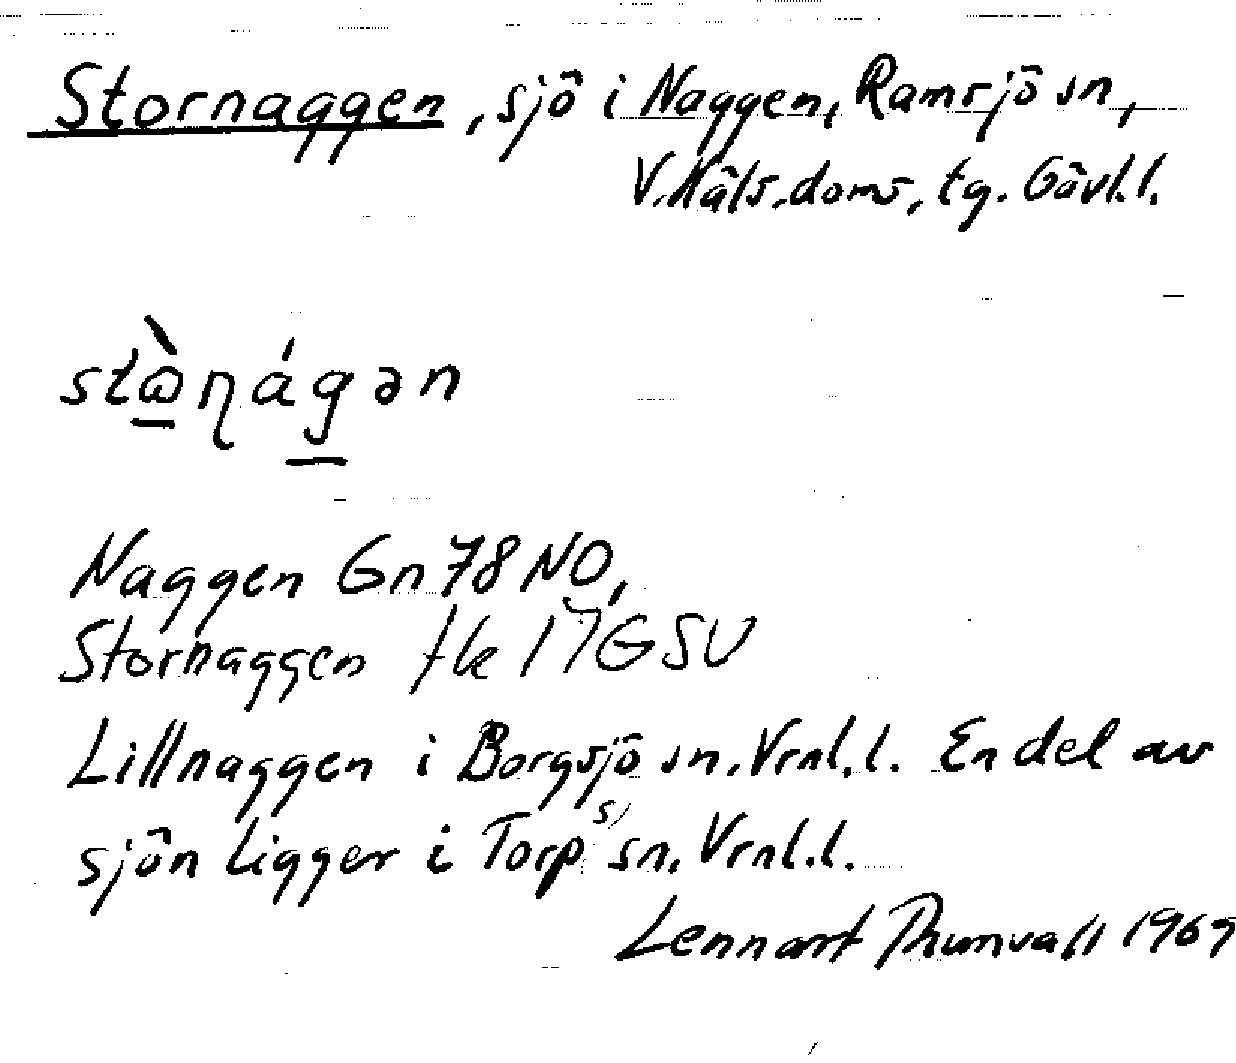 Stornaggen, sjö i Naggen, Ramsjö sn,
V. Häls. doms, tg. Gävl. l.
stɷ̀ɳágən
Naggen Gn 78 NO,
Stornaggen fk 17G SV
Lillnaggen i Borgsjö sn. Vrnl. l. En del av
sjön ligger i Torps sn. Vrnl. l.
Lennart Thunvall 1969